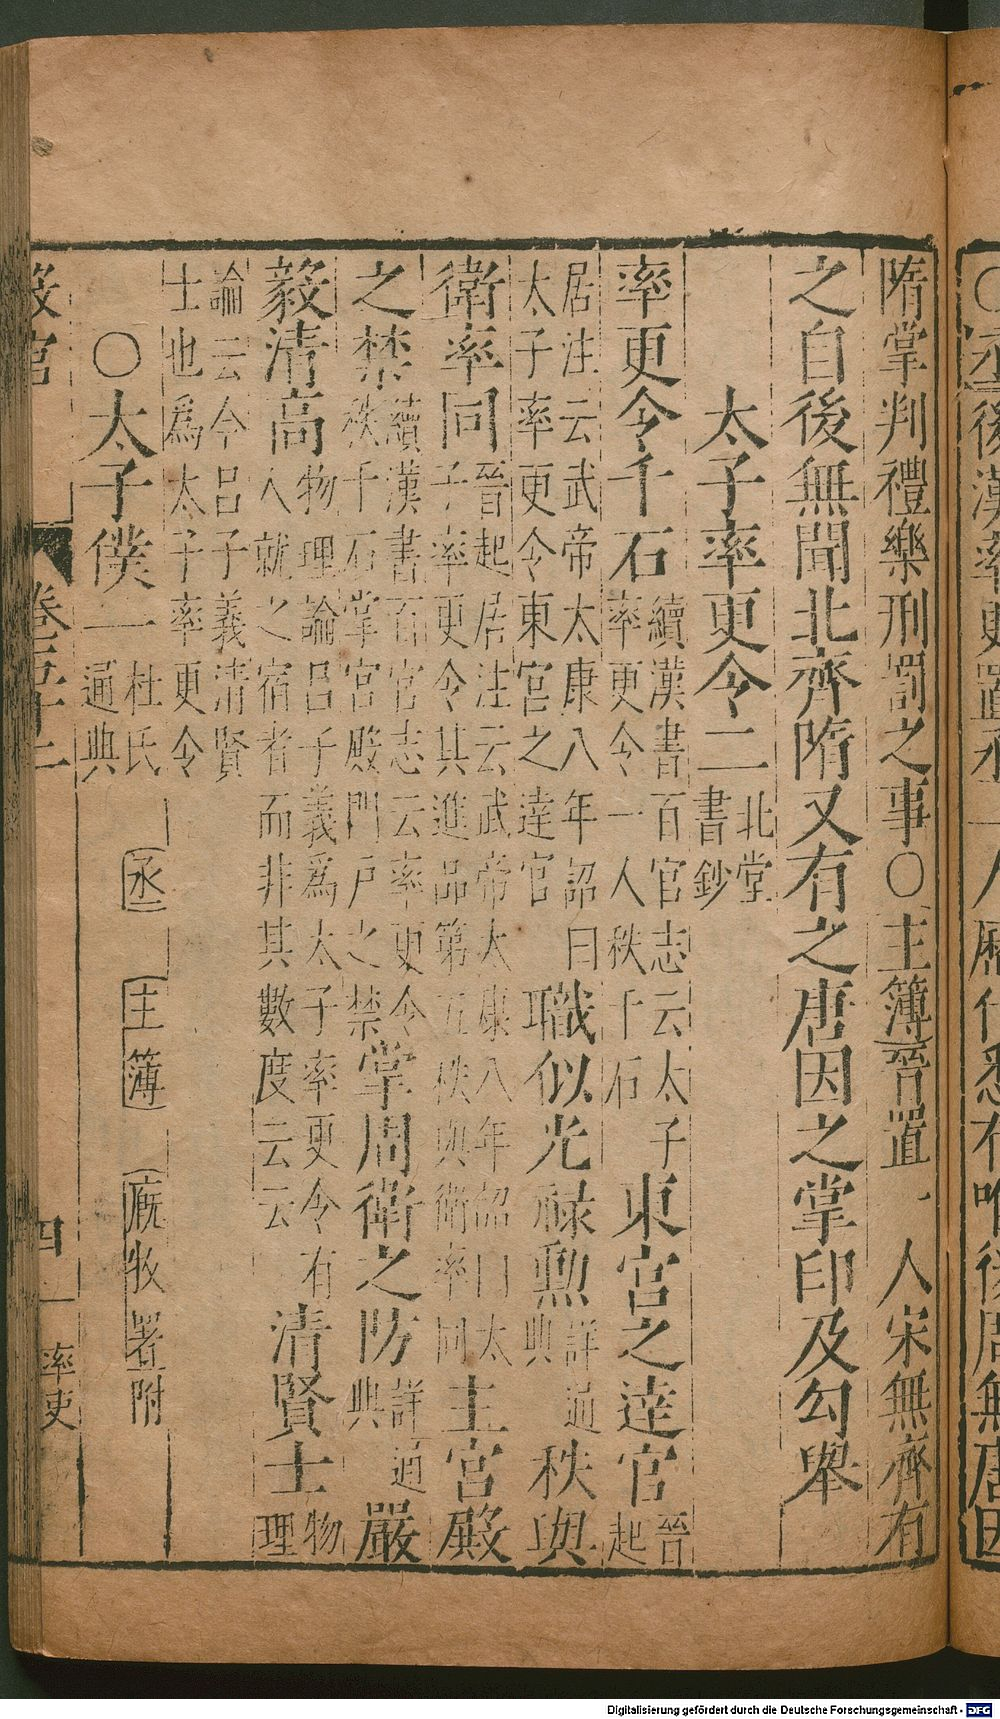 隋掌判禮樂刑罰之事○主簿晉置一人宋無齊有
之自後無聞北齊隋又有之唐因之掌印及勾舉
太子率更令二北堂書鈔
率更令千石續漢書百官志云太子率更令一人秩千石東宮之達官晉起
居注云武帝太康八年詔曰太子率更令東宮之達官職似光祿勲詳通典秩與
衛率同晉起居注云武帝太康八年詔曰太子率更令其進品第五秩與衛率同主宮殿
之禁續漢書百官志云率更令秩千石掌宮殿門戶之禁掌周衛之防詳通典嚴
毅清高物理論呂子義為太子率更令有人就之宿者而非其數度云云清賢士物理
論云今呂子義清賢士也為太子率更令
○太子僕一杜氏通典 丞 主簿 廐牧署附
設官
卷七十二
四
率吏
Digitalisierung gefördert durch die Deutsche Forschungsgemeinschaft - DFG